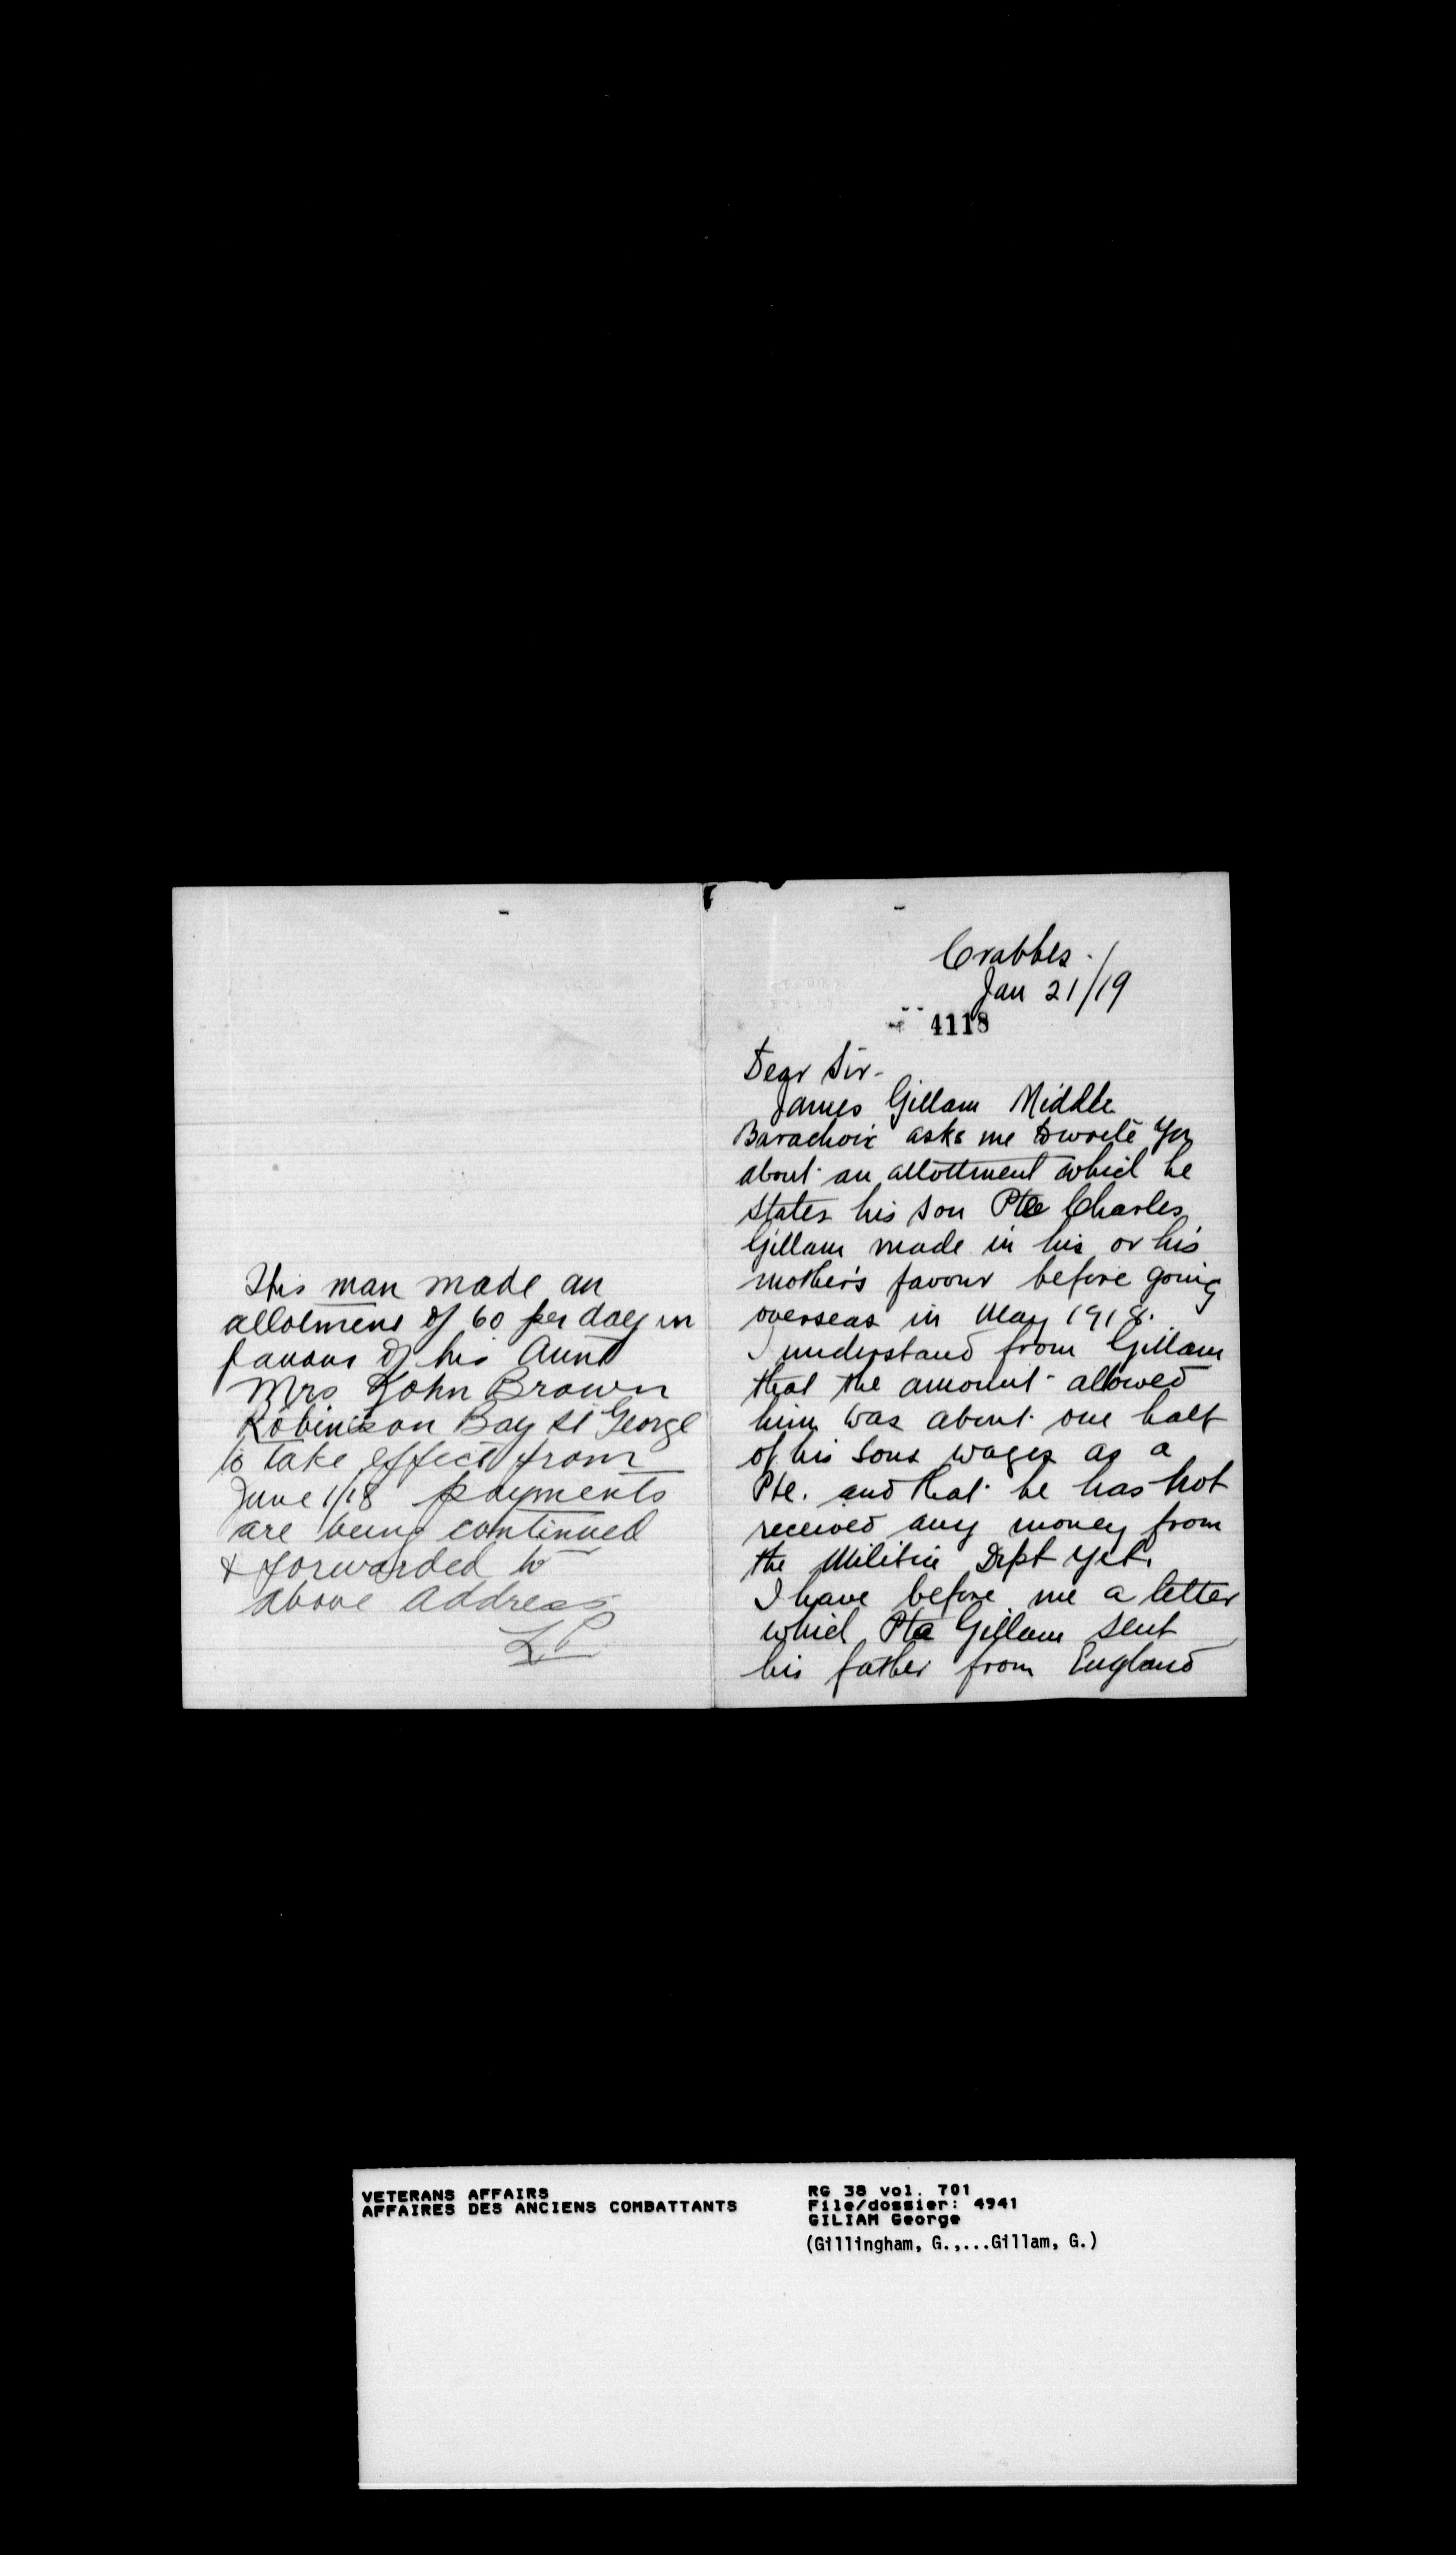 This man made an
allotment of 60 per day in
favour of his Aunt
Mrs John Brown
Robinson Bay St George
to take effect from
June 1/18 payments
are being continued
& forwarded to
above address
LP
Crabbes.
Jan 21/19
4118
Dear Sir-
James Gillam Middle
Barachoix asks me to write you
about an allottment which he
states his son Pte Charles
Gillam made in his or his
mother's favour before going
overseas in May 1918.
I understand from Gillam
that the amount allowed
him was about one half
of his sons wages as a
Pte. and that he has not
received any money from
the Militia Dept yet.
I have before me a letter
which Pte Gillam sent
his father from England
VETERANS AFFAIRS
AFFAIRES DES ANCIENS COMBATTANTS
RG 38 vol. 701
File/dossier: 4941
GILIAM George
(Gillingham, G.,...Gillam, G.)